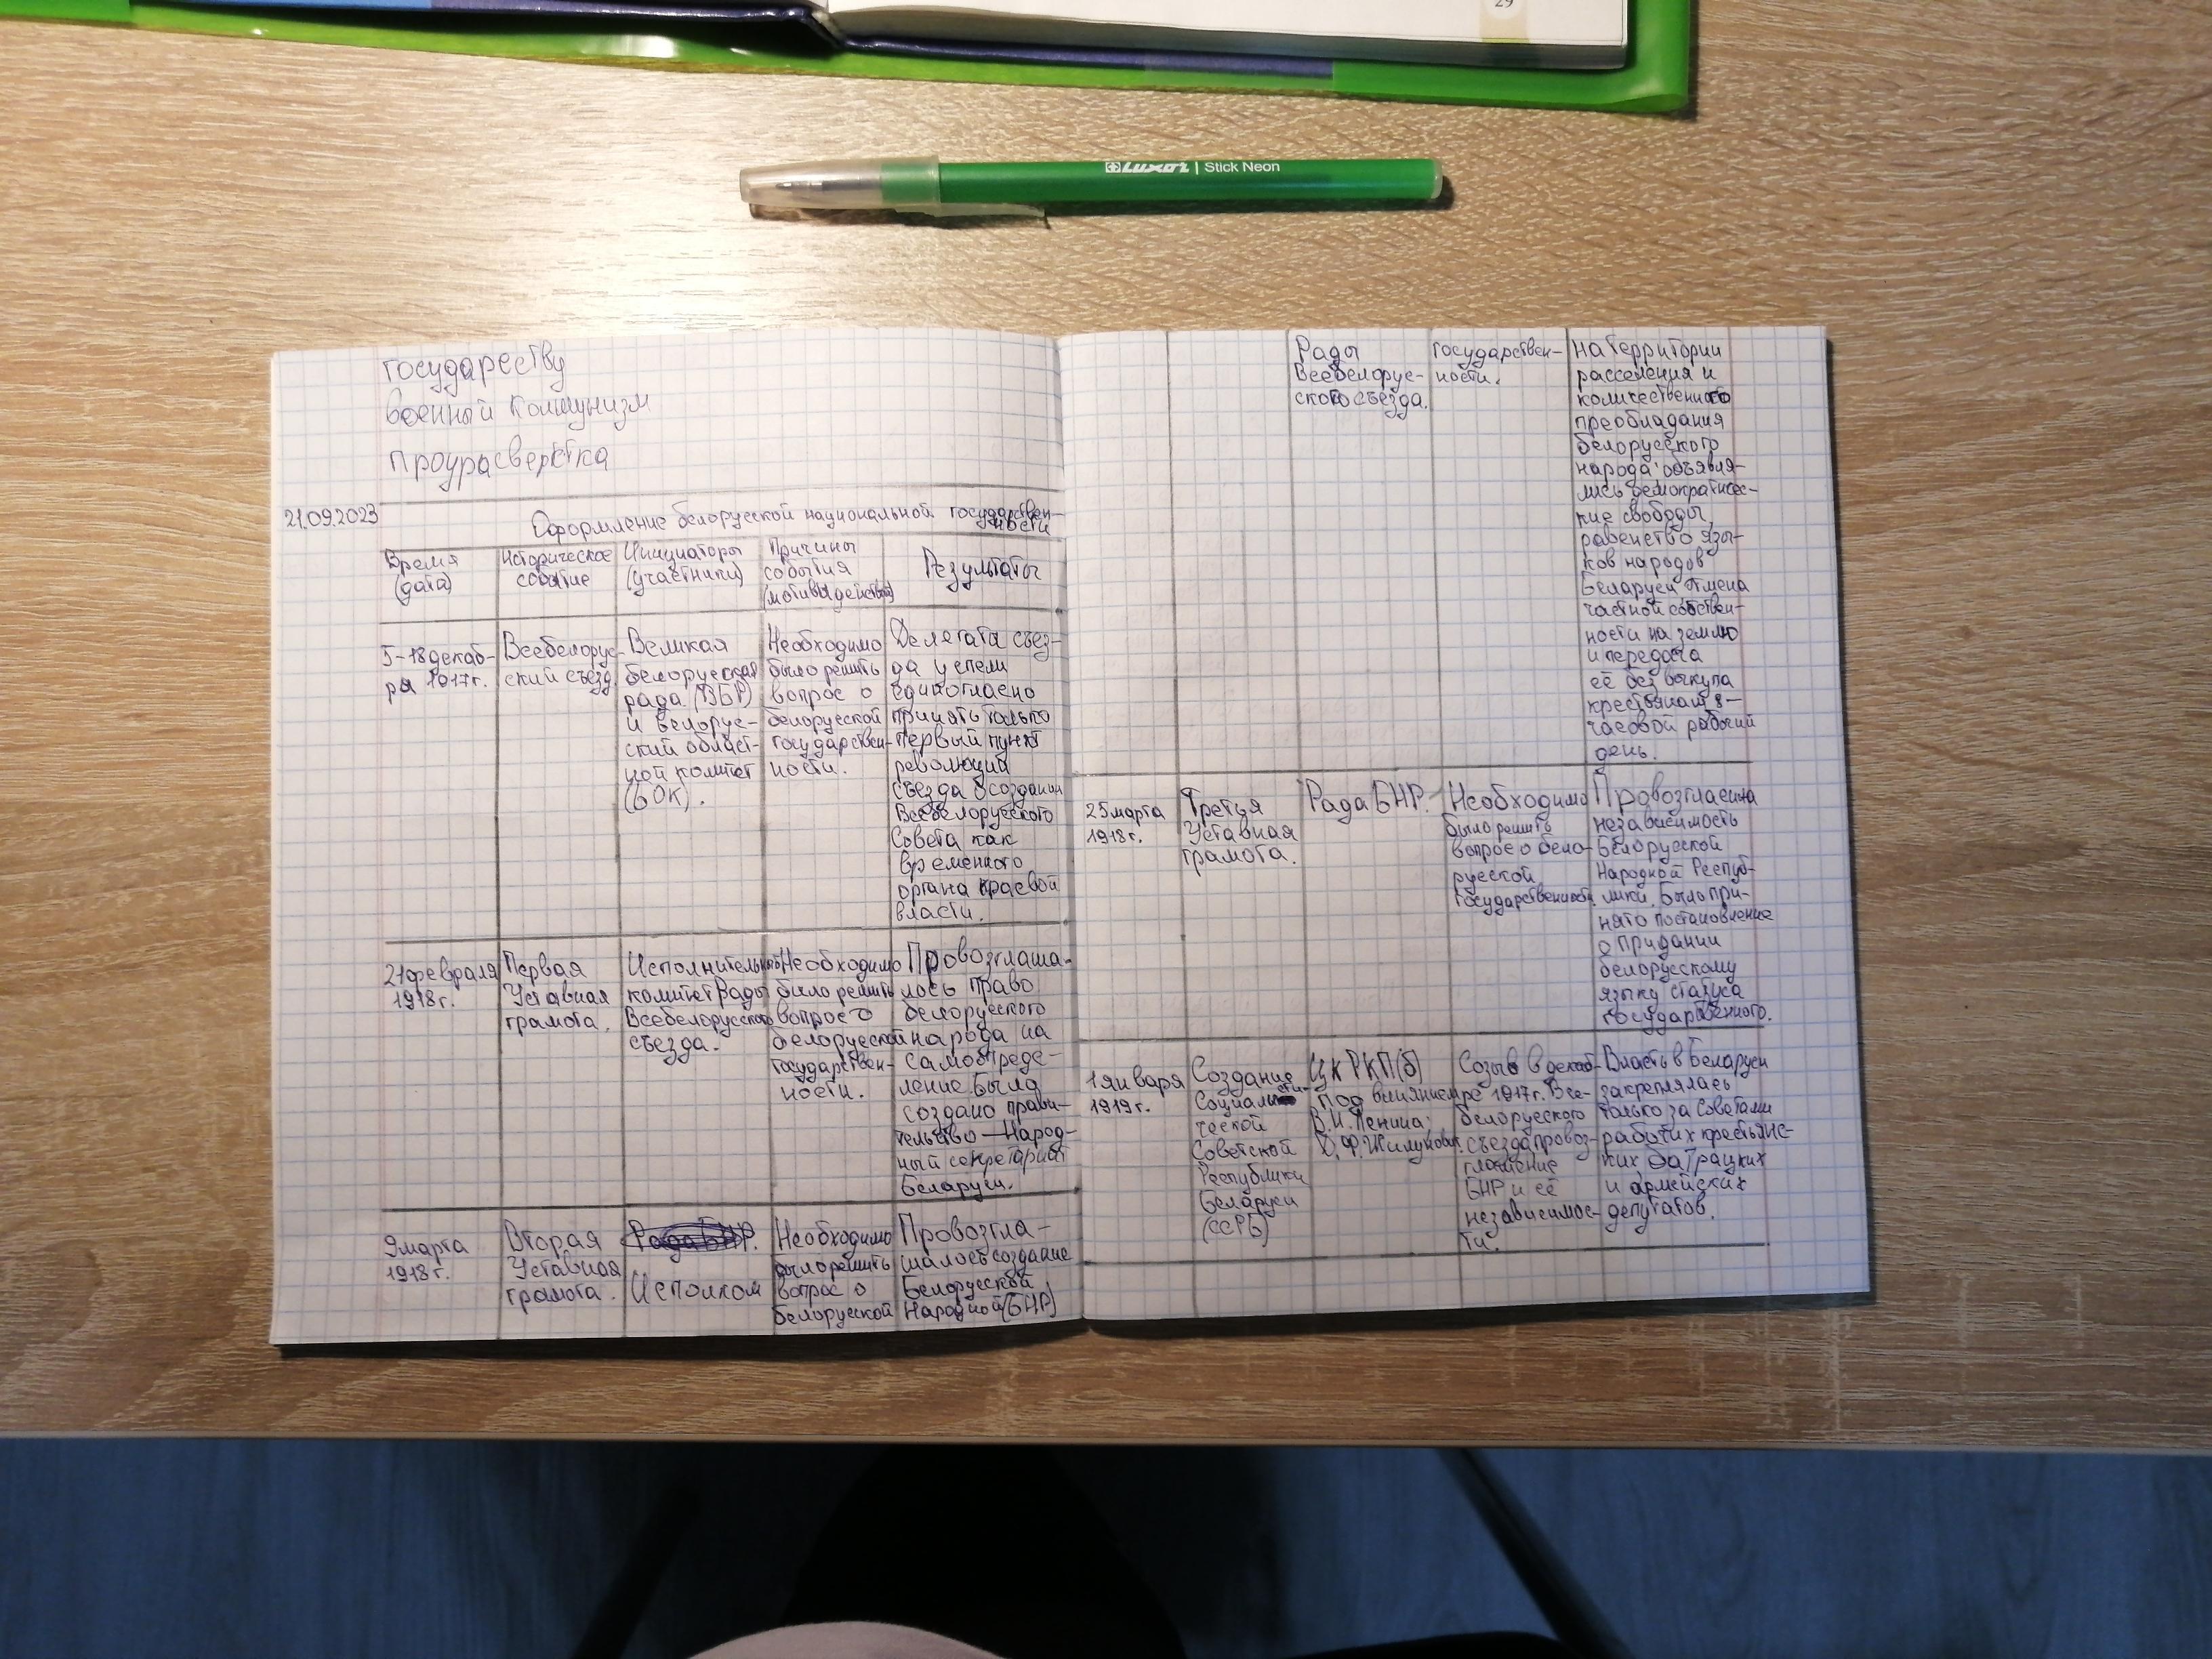 29
LUXOR | Stick Neon
государеству
военный коммунизм
проурасверстка
21.09.2023
Оформление белорусской национальной государствен-
ности
Время
(дата)
Историческое
событие
Инициаторы
(участники)
Причины
события
(мотивы действий)
Результаты
5-18 декаб-
ря 1917г.
Всебелорус-
ский съезд
Великая
белорусская
рада (ВБР)
и Белорус-
ский област-
ной комитет
(БОК).
Необходимо
было решить
вопрос о
белорусской
государствен-
ности.
Делегата съез-
да успели
единогласно
принять только
первый пункт
революции
съезда о создании
Всебелорусского
Совета как
временного
органа краевой
власти.
21 февраля
1918г.
Первая
Уставная
грамота.
Исполнительный
комитет Рады
Всебелорусского
съезда.
Необходимо
было решить
вопрос о
белорусской
государствен-
ности.
Провозглаша-
лось право
белорусского
народа на
самоопреде-
ление. Было
создано прави-
тельство — Народ-
ный секретариат
Беларуси.
9 марта
1918г.
Вторая
Уставная
грамота.
Рада БНР.
Исполком
Необходимо
было решить
вопрос о
белорусской
Провозгла-
шалось создание
Белорусской
Народной (БНР)
Рады
Всебелорус-
ского съезда.
государствен-
ности.
на территории
расселения и
количественного
преобладания
белорусского
народа: объявля-
лись демократичес-
кие свободы,
равенство язы-
ков народов
Беларуси, отмена
частной собствен-
ности на землю
и передача
её без выкупа
крестьянам 8-
часовой рабочий
день.
25 марта
1918г.
Третья
Уставная
грамота.
Рада БНР.
Необходимо
было решить
вопрос о бело-
русской
государственности.
Провозглашена
независимость
Белорусской
Народной Респуб-
лики. Было при-
нято постановление
о придании
белорусскому
языку статуса
государственного.
1 января
1919г.
Создание
Социалисти-
ческой
Советской
Республики
Беларуси
(ССРБ)
ЦК РКП(б)
под влиянием
В.И. Ленина;
Д.Ф. Жилунович.
Созыв в декаб-
ре 1917г. Все-
белорусского
съезда провоз-
глашение
БНР и её
независимос-
ти.
Власть в Беларуси
закреплялась
только за Советами
рабочих крестьянс-
ких, батрацких
и армейских
депутатов.